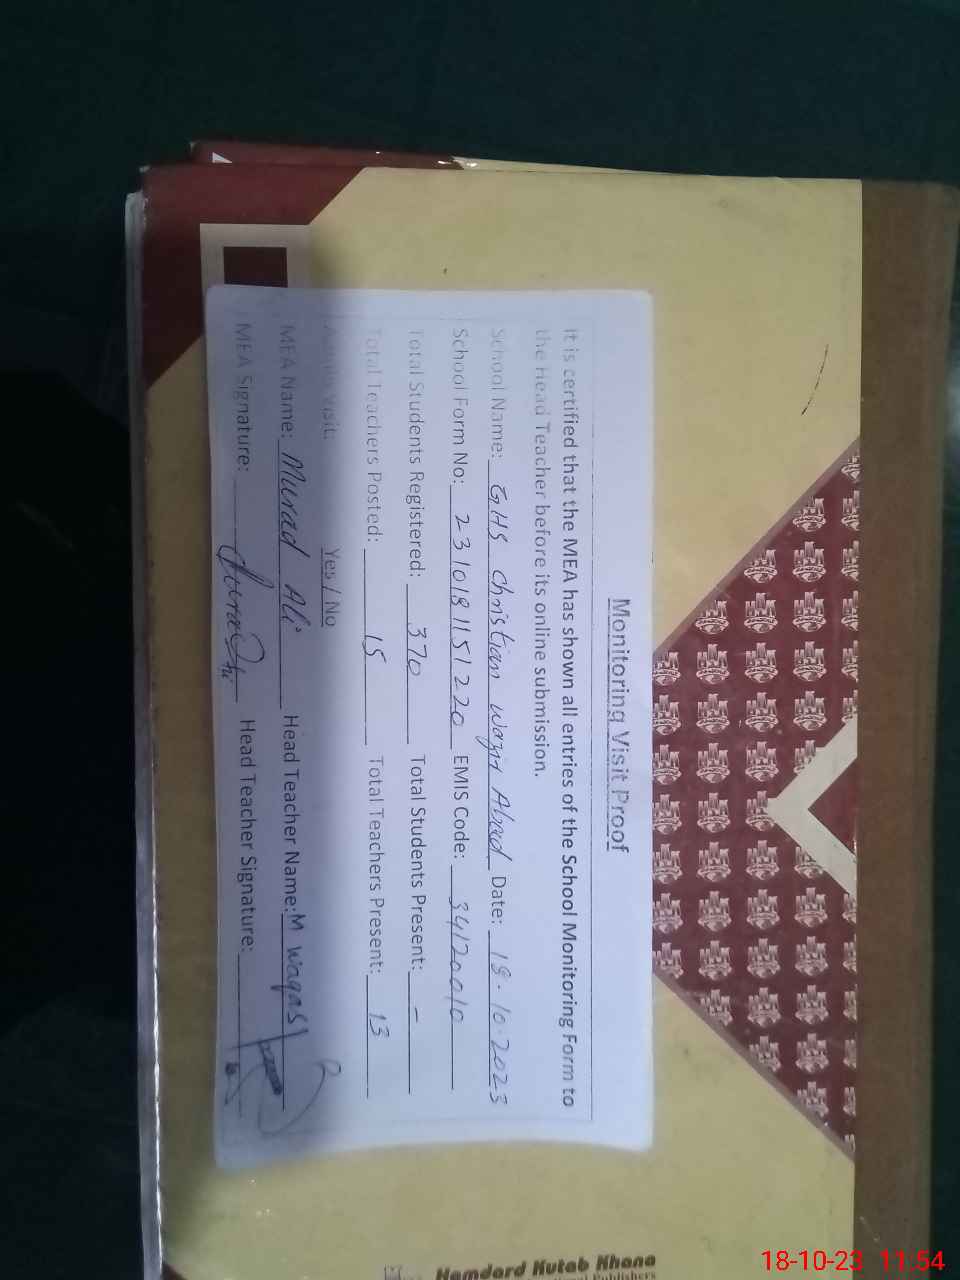 Monitoring Visit Proof
It is certified that the MEA has shown all entries of the School Monitoring Form to
the Head Teacher before its online submission.
School Name: GHS Christian Wazir Abad Date: 18.10.2023
School Form No: 2310181151220 EMIS Code: 34120010
Total Students Registered: 370 Total Students Present: -
Total Teachers Posted: 15 Total Teachers Present: 13
Visit: Yes / No
MEA Name: Murad Ali Head Teacher Name: M Waqas
MEA Signature: Head Teacher Signature:
Hamdard Kutab Khana
Publishers
18-10-23 11:54